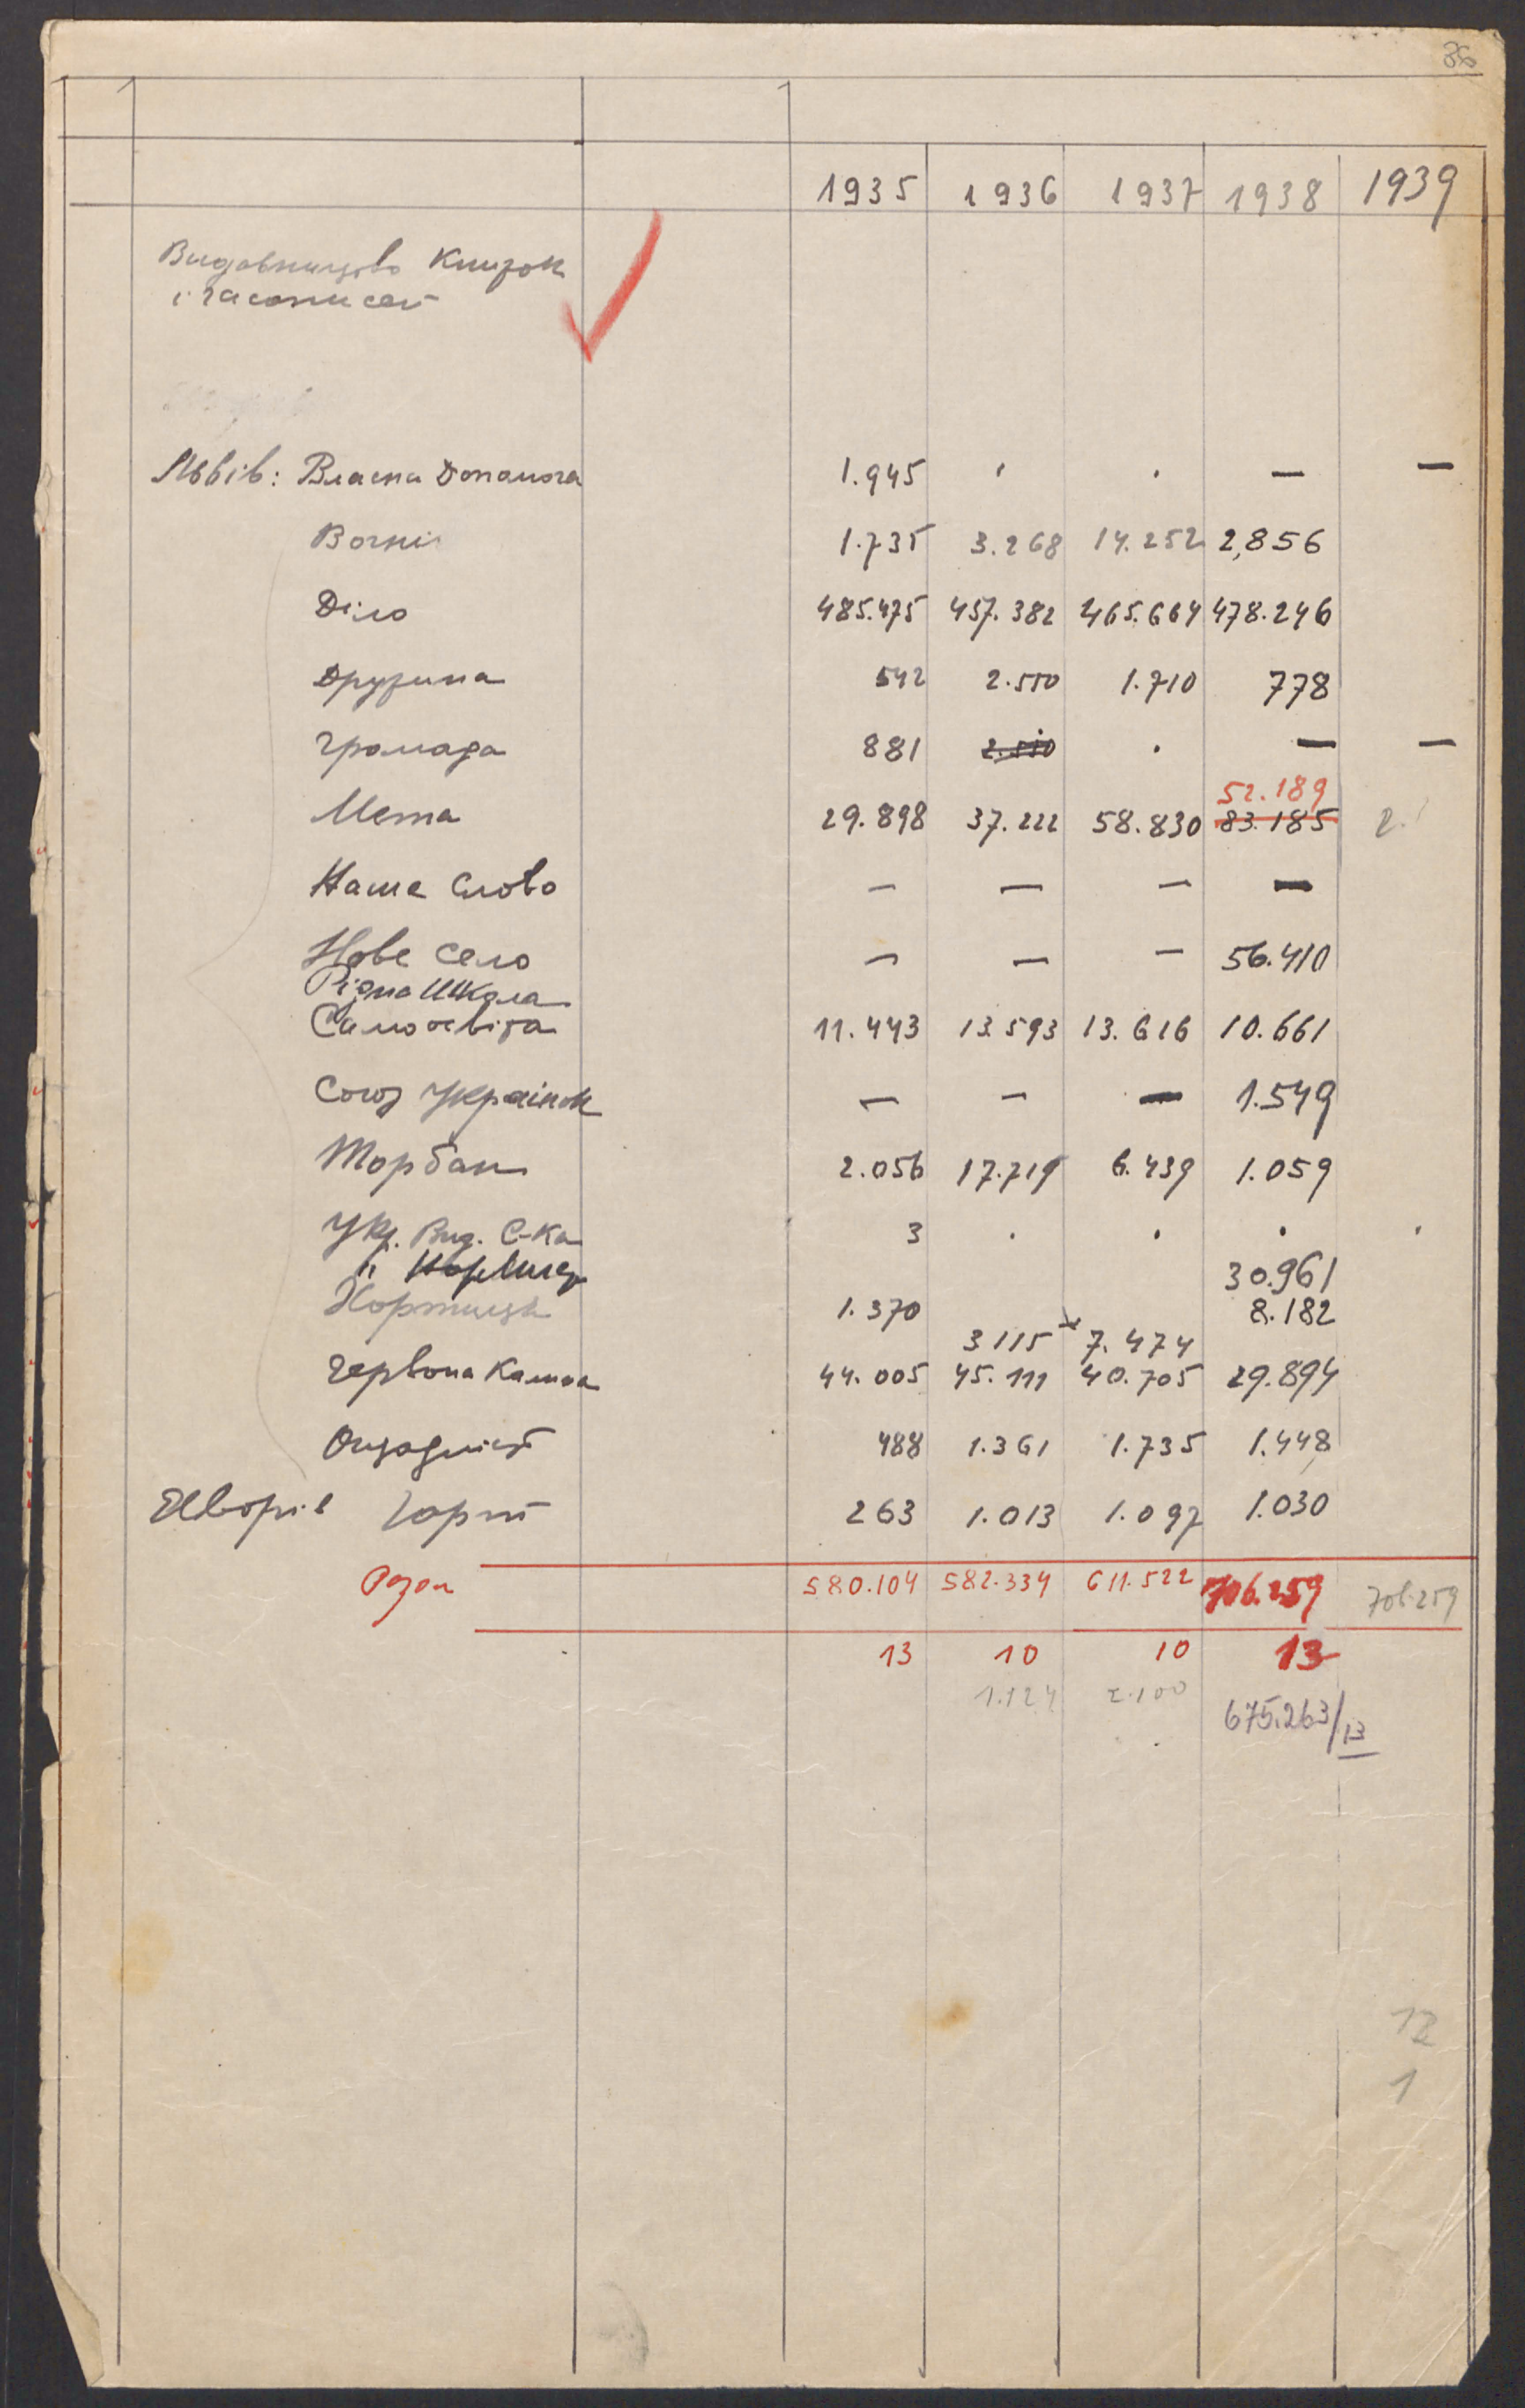 36
1935 1936 1937 1938 1939
Видавництво Книжок
і часописей
Львів: Власна Допомога 1.945 . . — —
Вогні 1.735 3.268 14.252 2,856
Діло 485.475 457.382 465.664 478.246
Дружина 542 2.550 1.710 778
Громада 881 2.550 . — —
52.189
Мета 29.898 37.222 58.830 83.185 2.
Наше Слово — — — —
Нове Село — — — 56.410
Рідна Школа
Самоосвіта 11.443 13.593 13.616 10.661
Союз Українок — — — 1.549
Торбан 2.056 17.719 6.439 1.059
Укр. Вид. С-ка 3 . . . .
" 30.961
Хортиця 1.370 8.182
3115 7.474
Червона Калина 44.005 45.111 40.705 29.894
Ощадність 488 1.361 1.735 1.448
Яворів Гарт 263 1.013 1.097 1.030
Разом 580.104 582.334 611.522 706.259 706.259
13 10 10 13
1.124 2.100
675.263/13
12
1